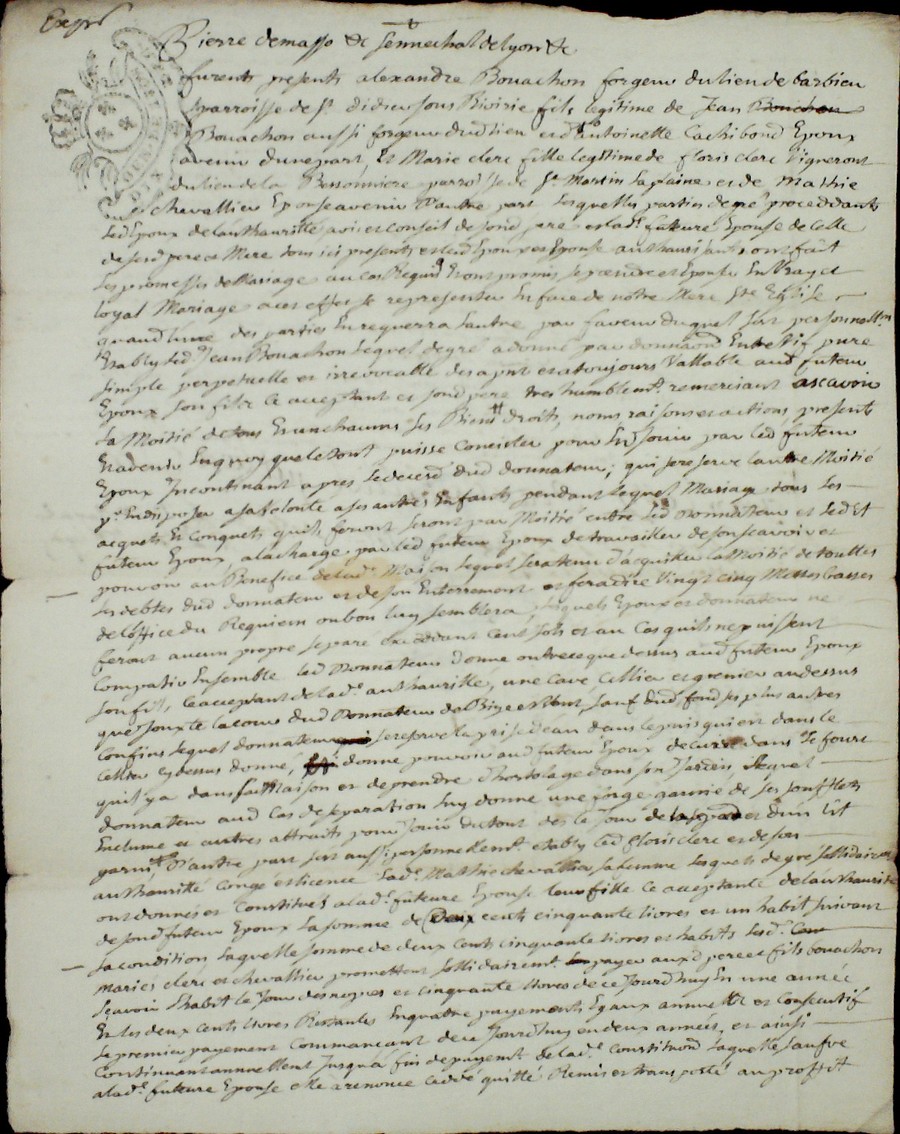 Expé
Pierre demasso &c senneschal de lyon &c
furents presents alexandre Bouachon forgeur du lieu de barbieu
parroisse de st didieu sous Rivirie fils legitime de Jean Bouchon
Bouachon aussi forgeur dud lieu et dte antoinette Cachiboud Epoux
avenir d'une part, Et Marie clerc fille legitime de floris clerc Vigneront
du lieu de la Bessonniere parroisse de st Martin la plaine et de Mathie
chevallier Epouse avenir d'autre part lesquelles parties de gré procedidants
led Epoux de lauthaurité avis et conseil de sond pere et lade future Epouse de Celle
de sesd pere et Mere tous ici presents et led Epoux et Epouse authaurisants ont fait
les promesses de Mariage au cas Requis Et ont promis se prendre et Epouser En Vray et
loyal Mariage a cet effet se representer En face de notre Mere ste Eglise
quand l'une des parties En requerra l'autre par faveur duquel sest personnellnt
Etably led Jean Bouachon lequel de gré a donné par donnaon Entre Vif pure
simple perpetuelle et irrevocable des apnt et a toujours Vallable aud futeur
Epoux son fils ce acceptant et sond pere tres humblent remerciant ascavoir
La Moitié de tous Et un chacuns ses Biens droits, noms raisons et actions presents
Et avenir En quoy que le tout puisse concister pour En Jouir par led futeur
Epoux Incontinant apres le deced dud donnateur, qui se reserve l'autre Moitié
pr En disposer a sa volonté a ses autres Enfants pendant lequel Mariage tous les
acquets Et Conquets quils feront seront par Moitié entre led Donnateur et led Et
futeur Epoux, a la charge par led futeur Epoux de travailler de son scavoir et
pouvoir au Benefice de lade Maison lequel sera tenu d'acquitter la Moitié de touttes
les debtes dud donnateur et de son Enterrement et fera dire Vingt cinq Messes basses
de l'office du Requiem ou bon luy semblera, lesquels Epoux et donnateur ne
feront aucun propre separé Excedant cent sols et au Cas quils ne puissent
Compatir Ensemble led Donnateur donne outre ce que dessus aud futeur Epoux
son fils, ce acceptant de lade authaurité, une cave Cellier et grenier au dessus
que Jouxte la cour dud Donnateur de Bize et Vent, sauf dud fond ses plus autres
Confins lequel donnateur se reserve la prise d'eau dans le puis qui est dans le
Cellier cy dessus donné, donne pouvoir aud futeur Epoux de cuire dans le fourt
quil y a dans sa Maison et de prendre d'hortolage dans son Jardin, lequel
donnateur aud Cas de separation luy donne une forge garnie de ses soufflets
Enclume et autres attraits pour Jouir du tout des le Jour de la separaon et d'un lit
garni, D'autre part sest aussi personnellemt Etably led floris clerc et de son
authaurité Congé et licence lade Mathie chevallier sa femme lesquels de gré sollidairemt
ont donnés et Constitués a lade future Epouse leur fille ce acceptante de lauthaurité
de sond futeur Epoux la somme de Deux cents cinquante livres et un habit suivant
sa condition laquelle somme de deux cents cinquante livres et habits lesd
maries clerc et chevallier promettent sollidairemt payer auxd pere et fils bouachon
scavoir l'habit le Jour des nopces et cinquante livres de ce Jourd'huy En une année
Et les deux cents livres Restantes En quatre payements Egaux annuels et Consecutif
le premier payement Commançant de ce Jourd'huy en deux années, et ainsi
Continuant annuellemt Jusqu'a fin de payemt de lade Constituon laquelle sauf ve
a lade future Epouse elle a renoncé cedde quitté Remis et transporté au proffit